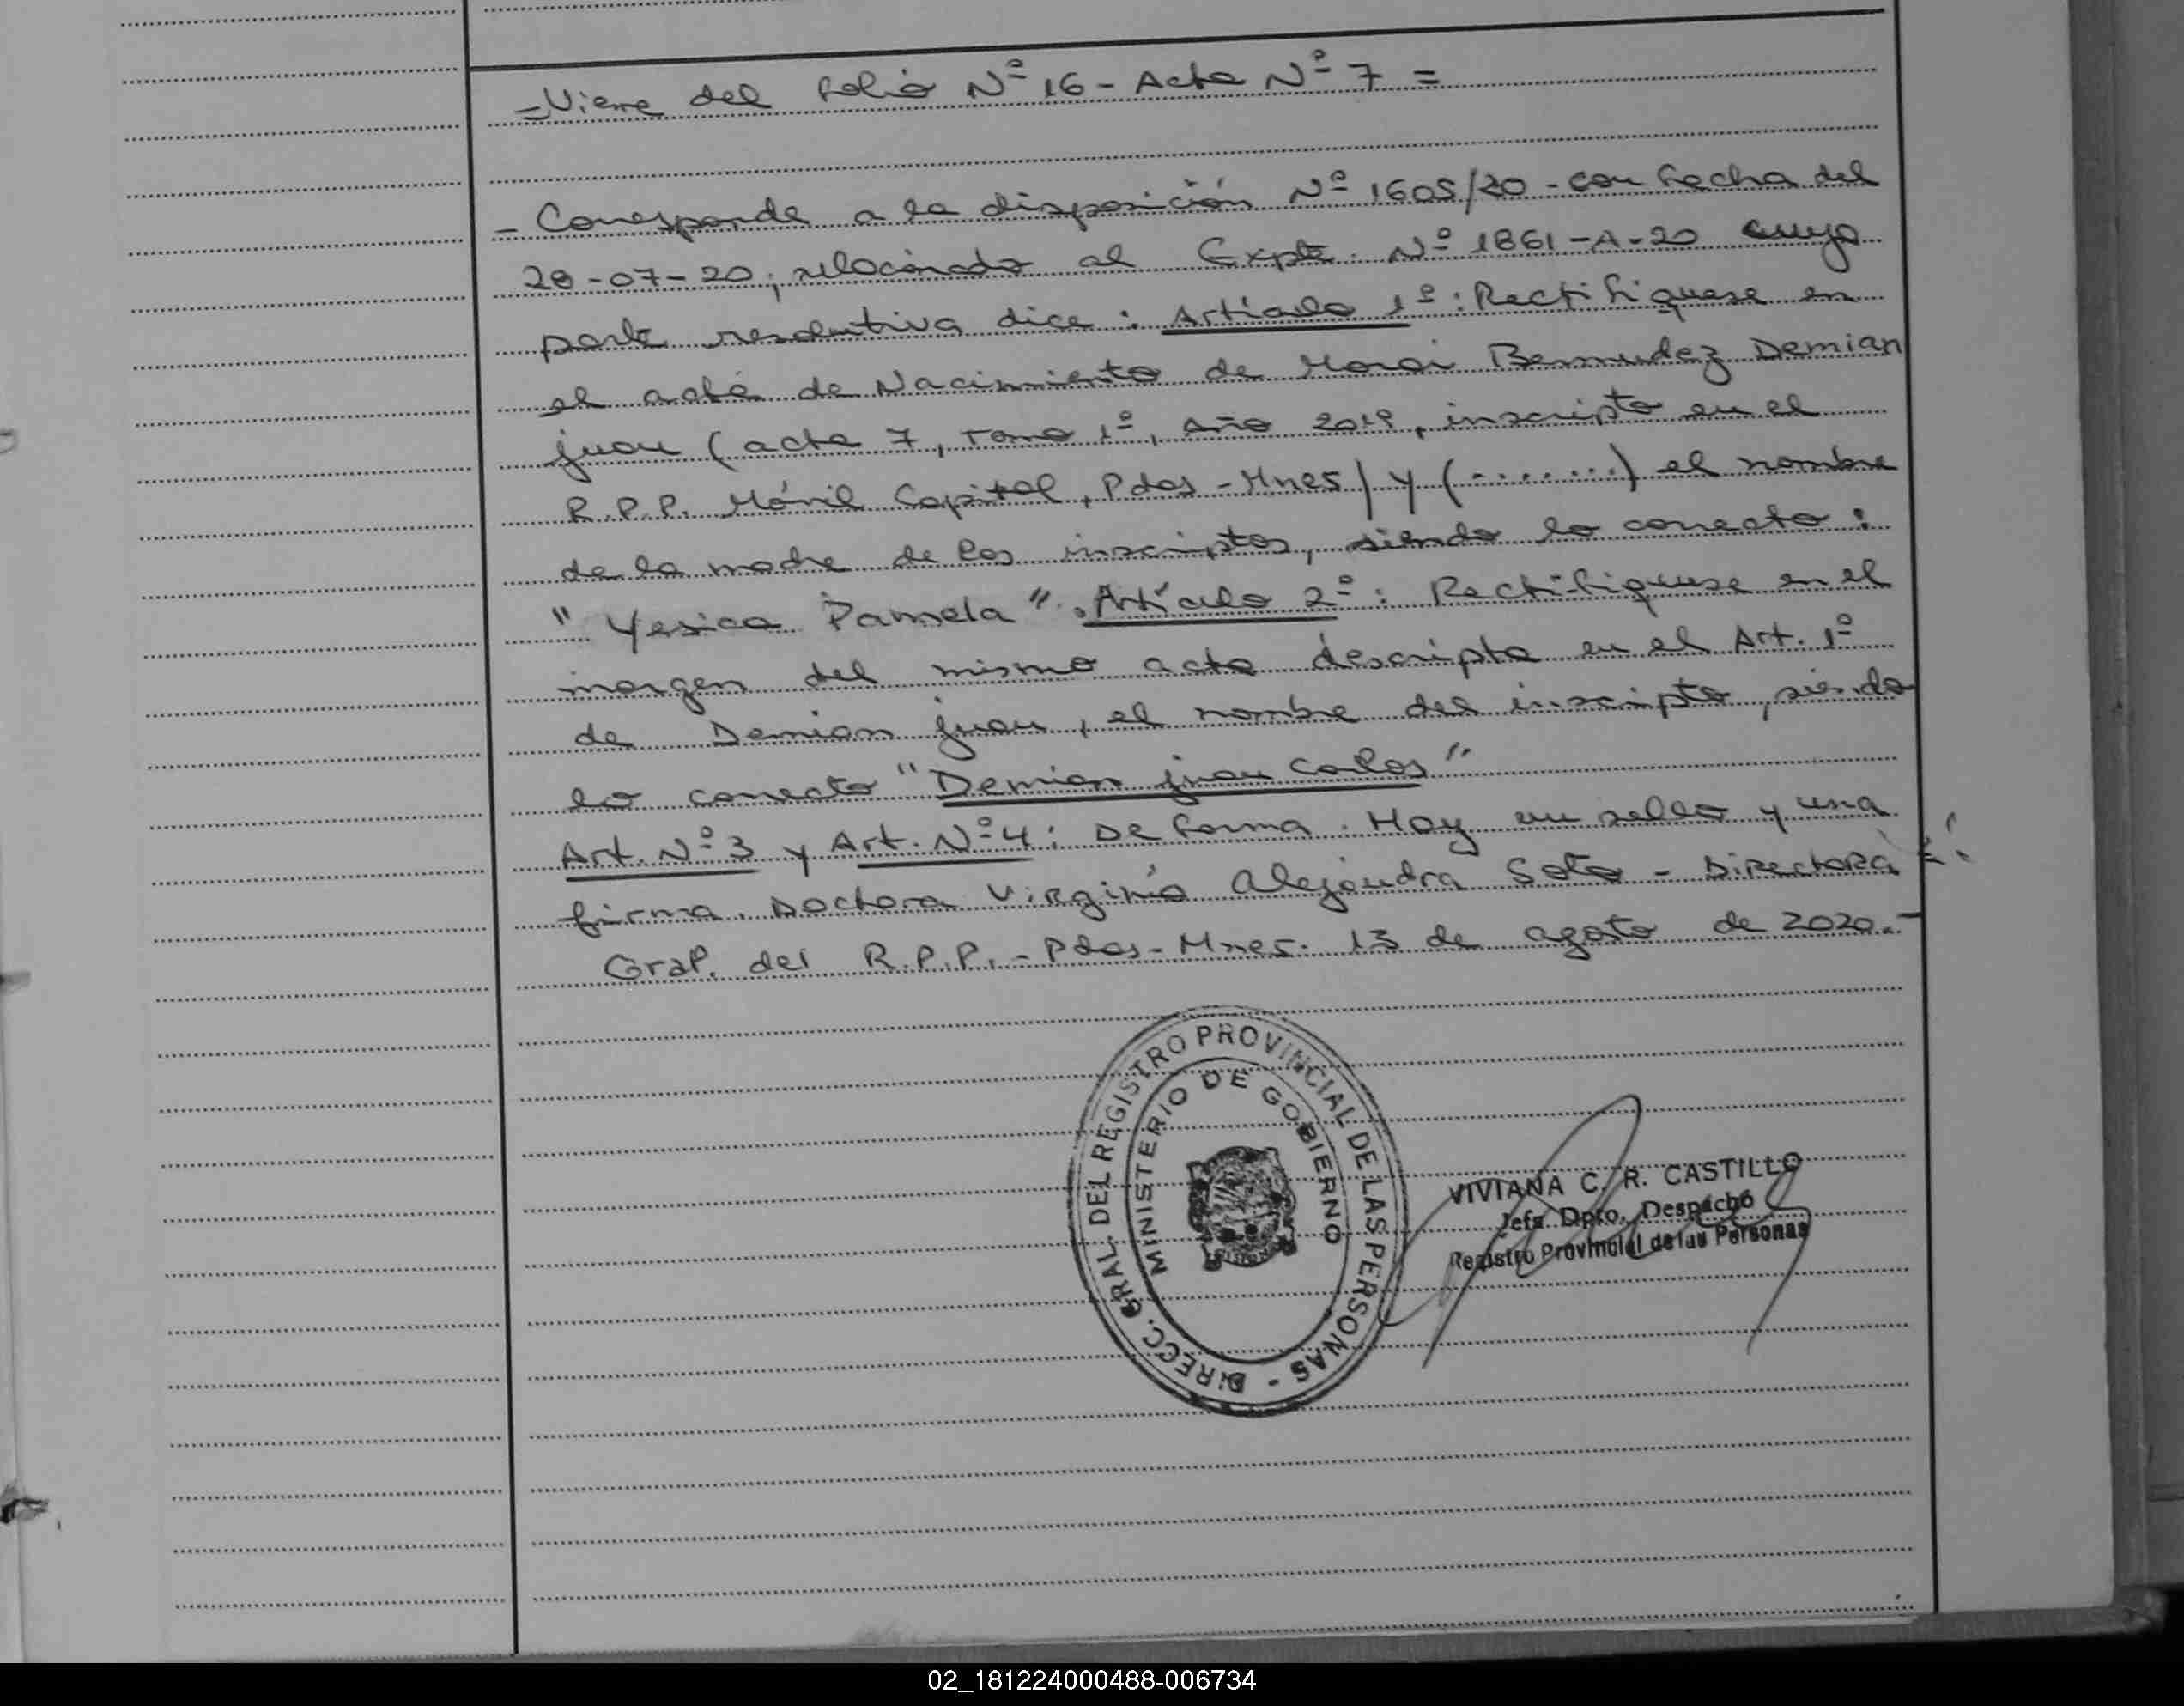 - Viene del folio Nº 16 - Acta Nº 7 =
- Corresponde a la disposición Nº 1605/20 - con fecha del
28-07-20, relacionado al Expte. Nº 1861-A-20 cuya
parte resolutiva dice: Artículo 1º: Rectifiquese en
el acta de Nacimiento de Bermudez Demian
juan (acta 7, Tomo 1º, Año 2019, inscripto en el
R.P.P. Móvil Capital, Pdas - Mnes) y (........) el nombre
de la madre de los inscriptos, siendo lo correcto:
" Yesica Pamela ". Artículo 2º: Rectifiquese en el
margen del mismo acta descripta en el Art. 1º
de Demian juan, el nombre del inscripto, siendo
lo correcto "Demian juan Carlos"
Art. Nº 3 y Art. Nº 4: De forma. Hay un sello y una
firma. Doctora Virginia Alejandra Soto - Directora
Gral. del R.P.P. - Pdas - Mnes. 13 de agosto de 2020.-
DIRECC. GRAL. DEL REGISTRO PROVINCIAL DE LAS PERSONAS -
MINISTERIO DE GOBIERNO
VIVIANA C. R. CASTILLO
Jefa Dpto. Despacho
Registro Provincial de las Personas
02_181224000488-006734